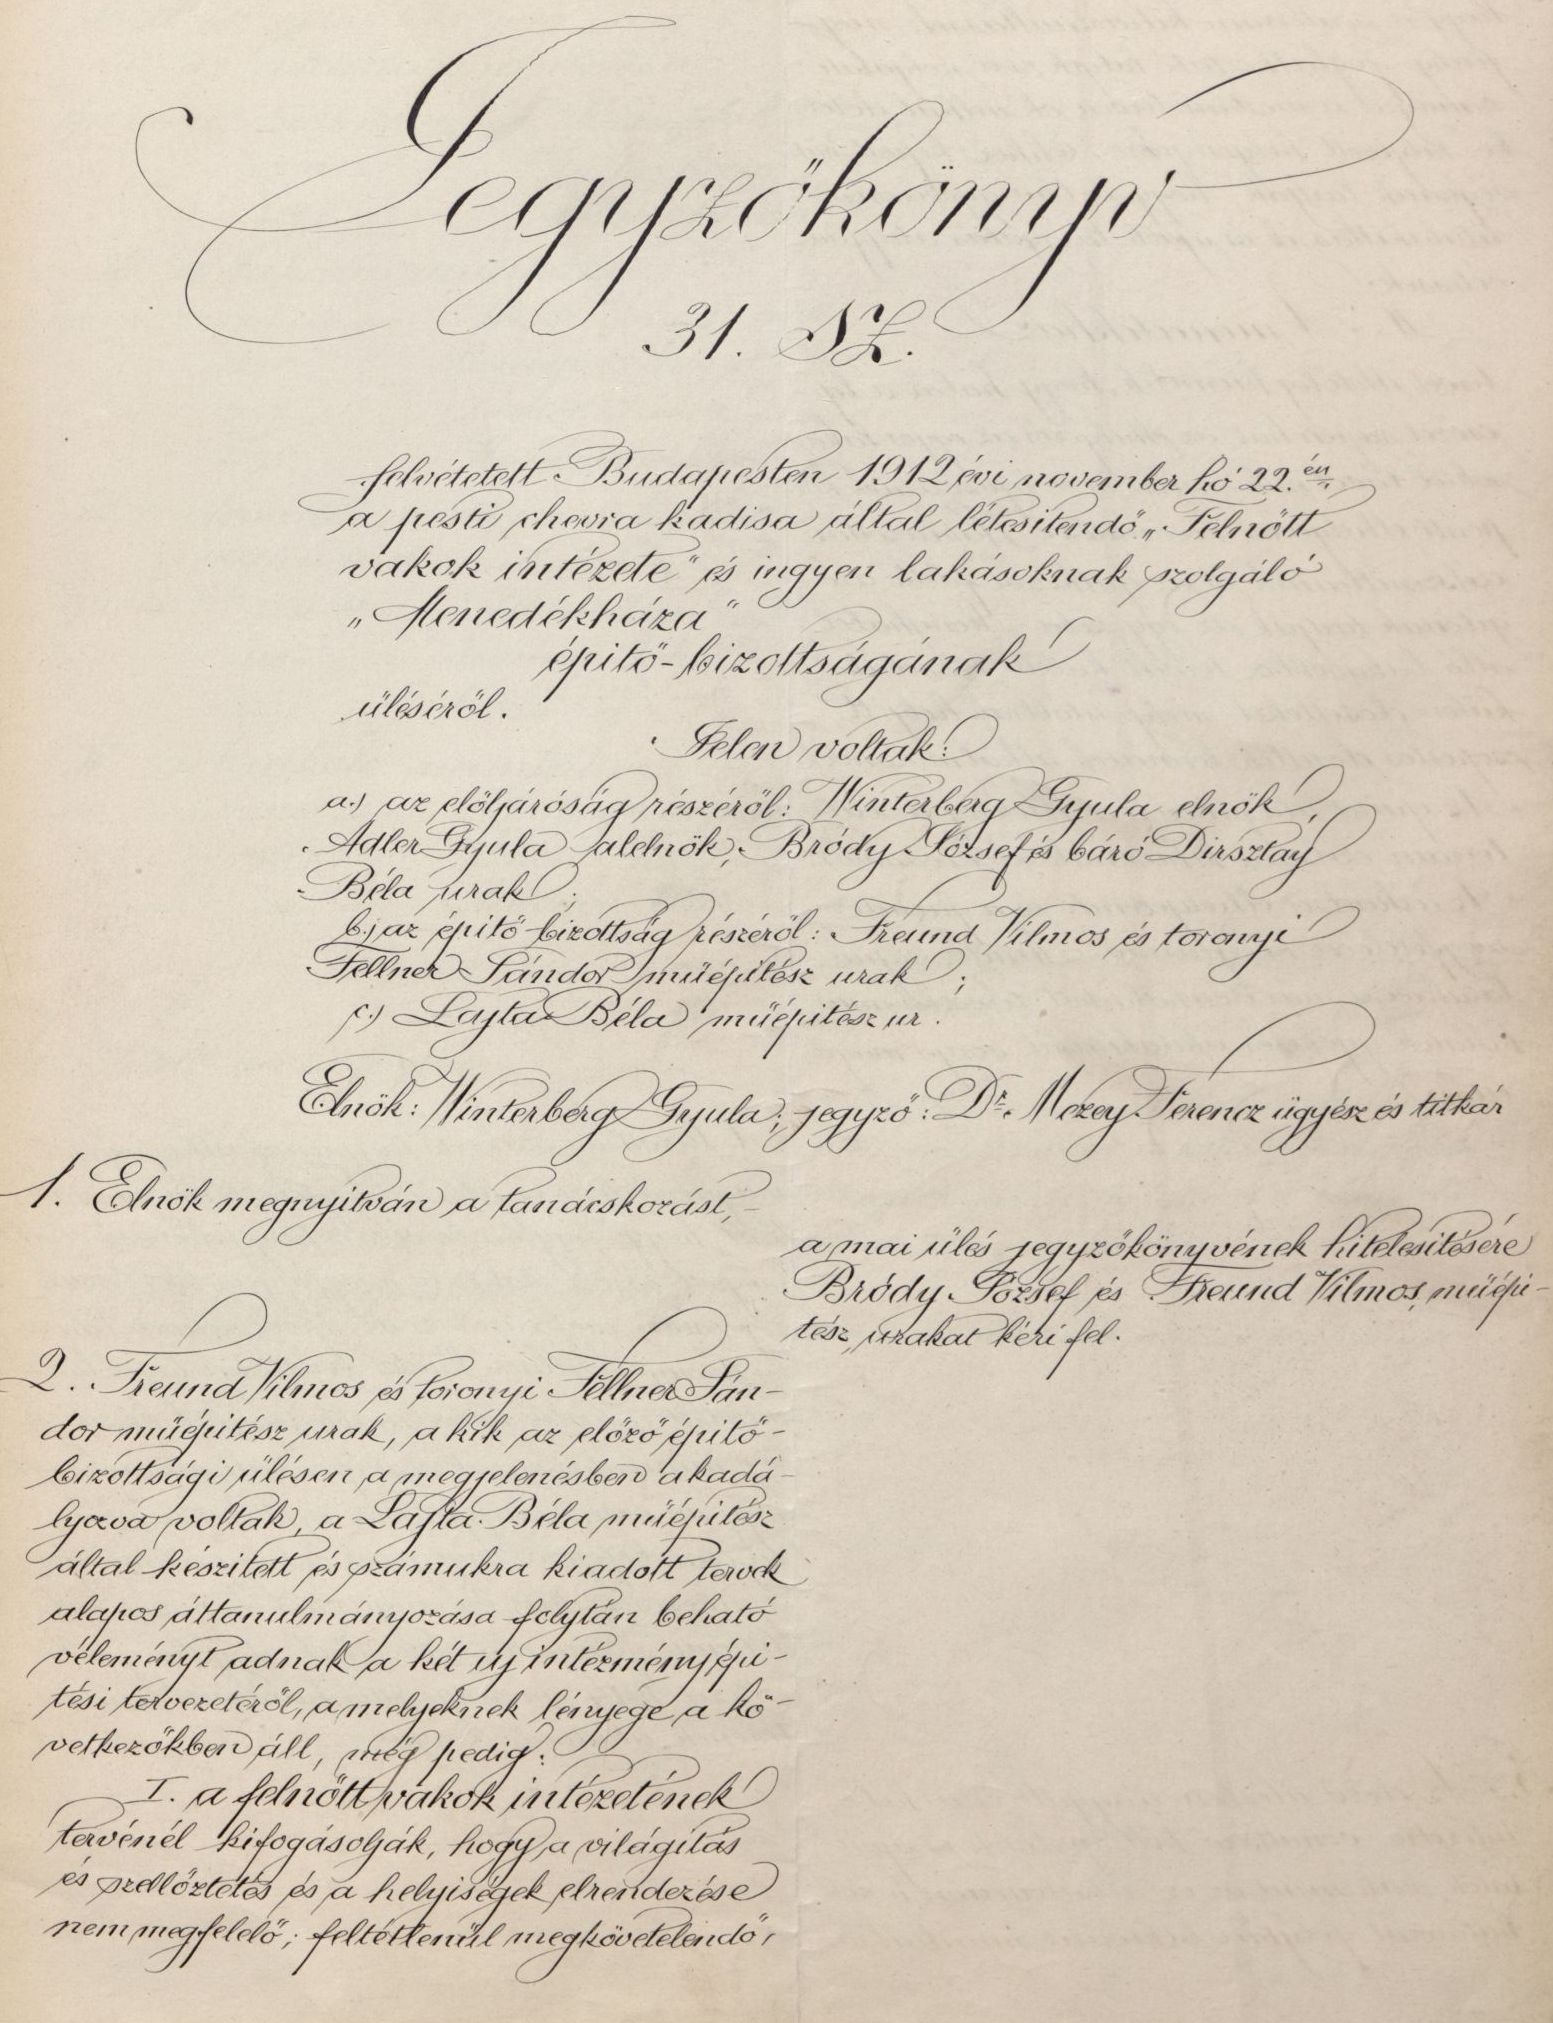 Jegyzőkönyv
31. SZ.
felvétetett Budapesten 1912 évi november hó 22.én,
a pesti chevra kadisa által létesitendő „Felnőtt
vakok intézete" és ingyen lakásoknak szolgáló
„Menedékháza"
épitő-bizottságának
üléséről.
Jelen voltak:
a.) az elöljáróság részéről: Winterberg Gyula elnök,
Adler Gyula alelnök, Bródy József és báró Dirsztay
Béla urak;
b.) az épitő bizottság részéről: Freund Vilmos és toronyi
Fellner Sándor müépitész urak;
c.) Lajta Béla müépitész ur.
Elnök: Winterberg Gyula; jegyző: Dr. Mezey Ferencz ügyész és titkár
1. Elnök megnyitván a tanácskozást, –
a mai ülés jegyzőkönyvének hitelesitésére
Bródy József és Freund Vilmos, müépi-
tész urakat kéri fel.
2. Freund Vilmos és toronyi Fellner Sán-
dor müépitész urak, a kik az előző épitő-
bizottsági ülésen a megjelenésben akadá-
lyozva voltak, a Lajta Béla müépitész
által készitett és számukra kiadott tervek
alapos áttanulmányozása folytán beható
véleményt adnak a két uj intézmény épi-
tési tervezetéről, a melyeknek lényege a kö-
vetkezőkben áll, még pedig:
I. a felnőtt vakok intézetének
tervénél kifogásolják, hogy a világítás
és szellőztetés és a helyiségek elrendezése
nem megfelelő; feltétlenül megkövetelendő,